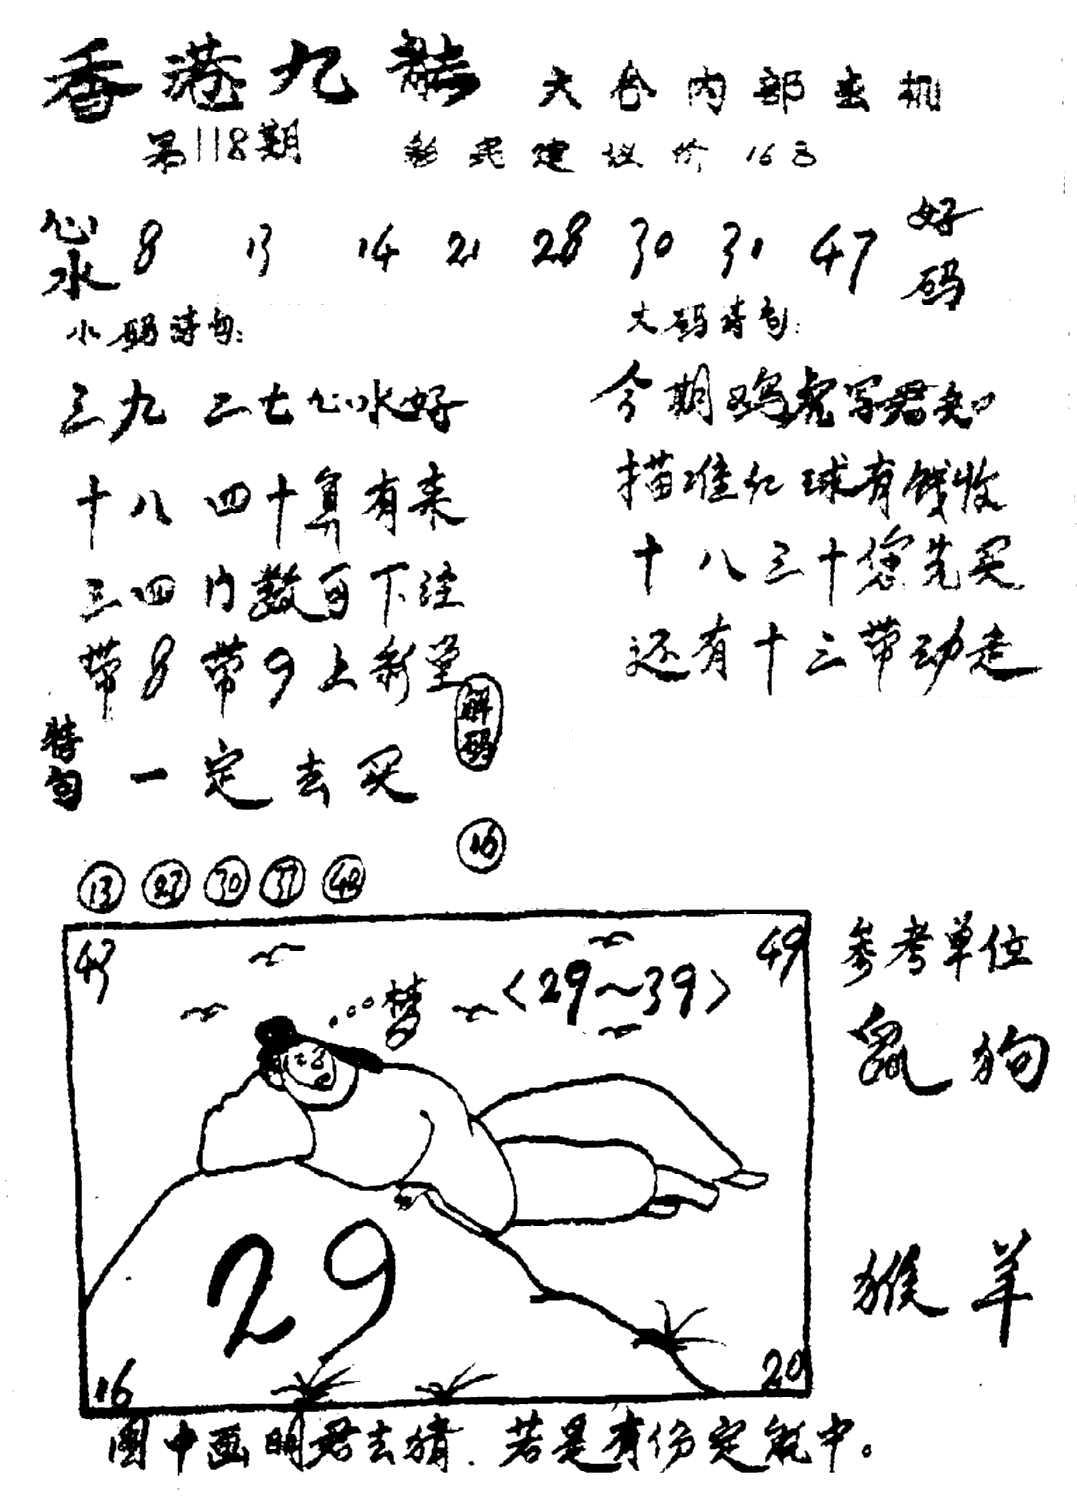 香港九龙 大会内部玄机
第118期 彩民建议价16
心水 8 13 14 21 28 30 31 47 好码
小码诗句:
三九二七心水好
十八四十算有来
三四门数可下注
带8带9上彩堂
大码诗句:
今期鸡虎写君知
描准红球有钱收
十八三十您先买
还有十三带动走
特句 一定去买
解码
16
13 27 30 37 48
49
梦
<29~39>
29
16
20
参考单位
鼠 狗
猴 羊
图中画明君去猜.若是有份定能中。